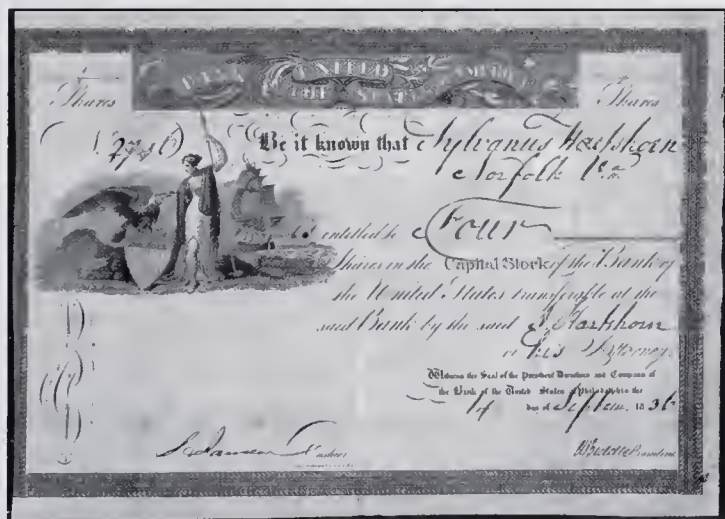 BANK OF THE UNITED STATES OF AMERICA
Shares Shares
Be it known that Sylvanus Hartshorn
Norfolk Va
is entitled to Four
Shares in the Capital Stock of the Bank of
the United States transferable at the
said Bank by the said S. Hartshorn
or his Attorney
Witness the Seal of the President Directors and Company of
the Bank of the United States at Philadelphia the
14 day of Septem. 1836
Cashier
N Biddle President